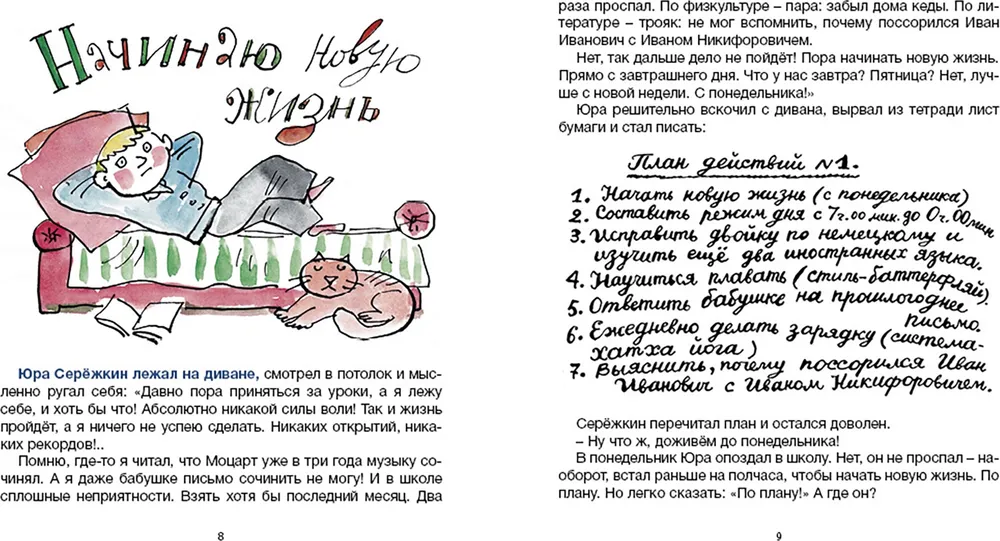 Начинаю новую
жизнь
Юра Серёжкин лежал на диване, смотрел в потолок и мыс-
ленно ругал себя: «Давно пора приняться за уроки, а я лежу
себе, и хоть бы что! Абсолютно никакой силы воли! Так и жизнь
пройдёт, а я ничего не успею сделать. Никаких открытий, ника-
ких рекордов!..
Помню, где-то я читал, что Моцарт уже в три года музыку со-
чинял. А я даже бабушке письмо сочинить не могу! И в школе
сплошные неприятности. Взять хотя бы последний месяц. Два
8
раза проспал. По физкультуре – пара: забыл дома кеды. По ли-
тературе – трояк: не мог вспомнить, почему поссорился Иван
Иванович с Иваном Никифоровичем.
Нет, так дальше дело не пойдёт! Пора начинать новую жизнь.
Прямо с завтрашнего дня. Что у нас завтра? Пятница? Нет, луч-
ше с новой недели. С понедельника!»
Юра решительно вскочил с дивана, вырвал из тетради лист
бумаги и стал писать:
План действий №1.
1. Начать новую жизнь (с понедельника)
2. Составить режим дня с 7ч.00 мин. до 0ч.00мин
3. Исправить двойку по немецкому и
изучить ещё два иностранных языка.
4. Научиться плавать (стиль-баттерфляй)
5. Ответить бабушке на прошлогоднее
письмо.
6. Ежедневно делать зарядку (система-
хатха йога)
7. Выяснить, почему поссорился Иван
Иванович с Иваном Никифоровичем.
Серёжкин перечитал план и остался доволен.
– Ну что ж, доживём до понедельника!
В понедельник Юра опоздал в школу. Нет, он не проспал – на-
оборот, встал раньше на полчаса, чтобы начать новую жизнь. По
плану. Но легко сказать: «По плану!» А где он?
9